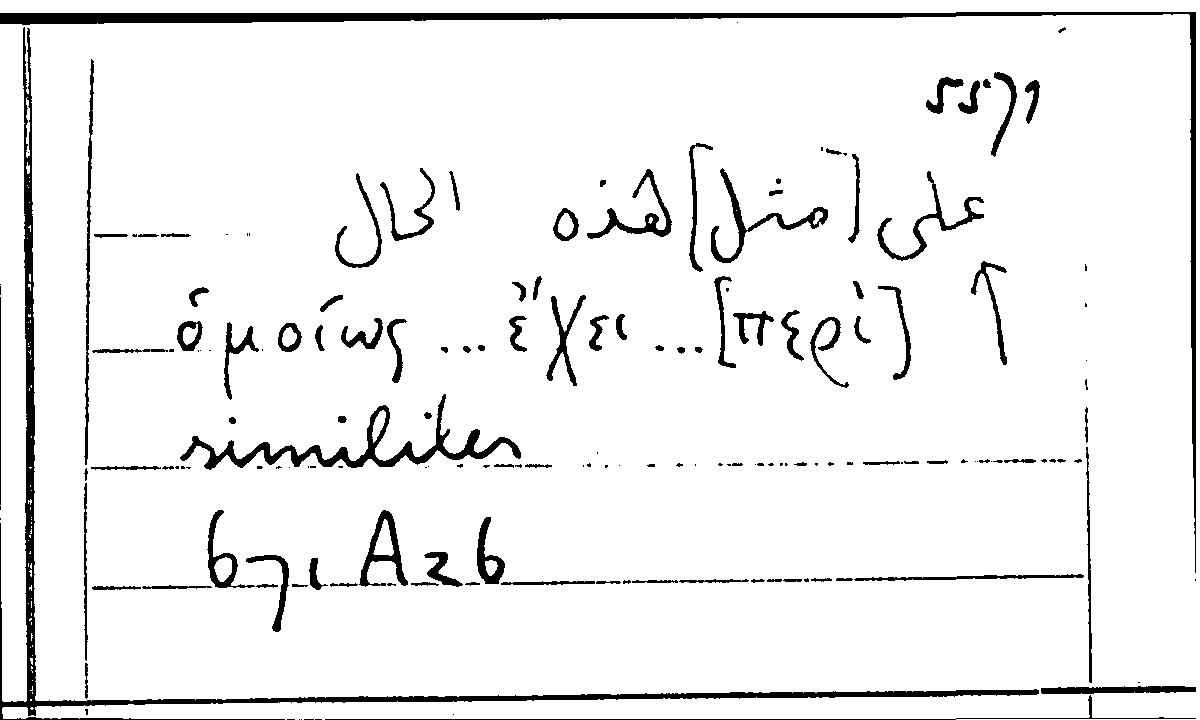 على [مثل] هذه الحال
ὁμοίως ... ἔχει ... [περὶ] ↑
similiter
671 A26